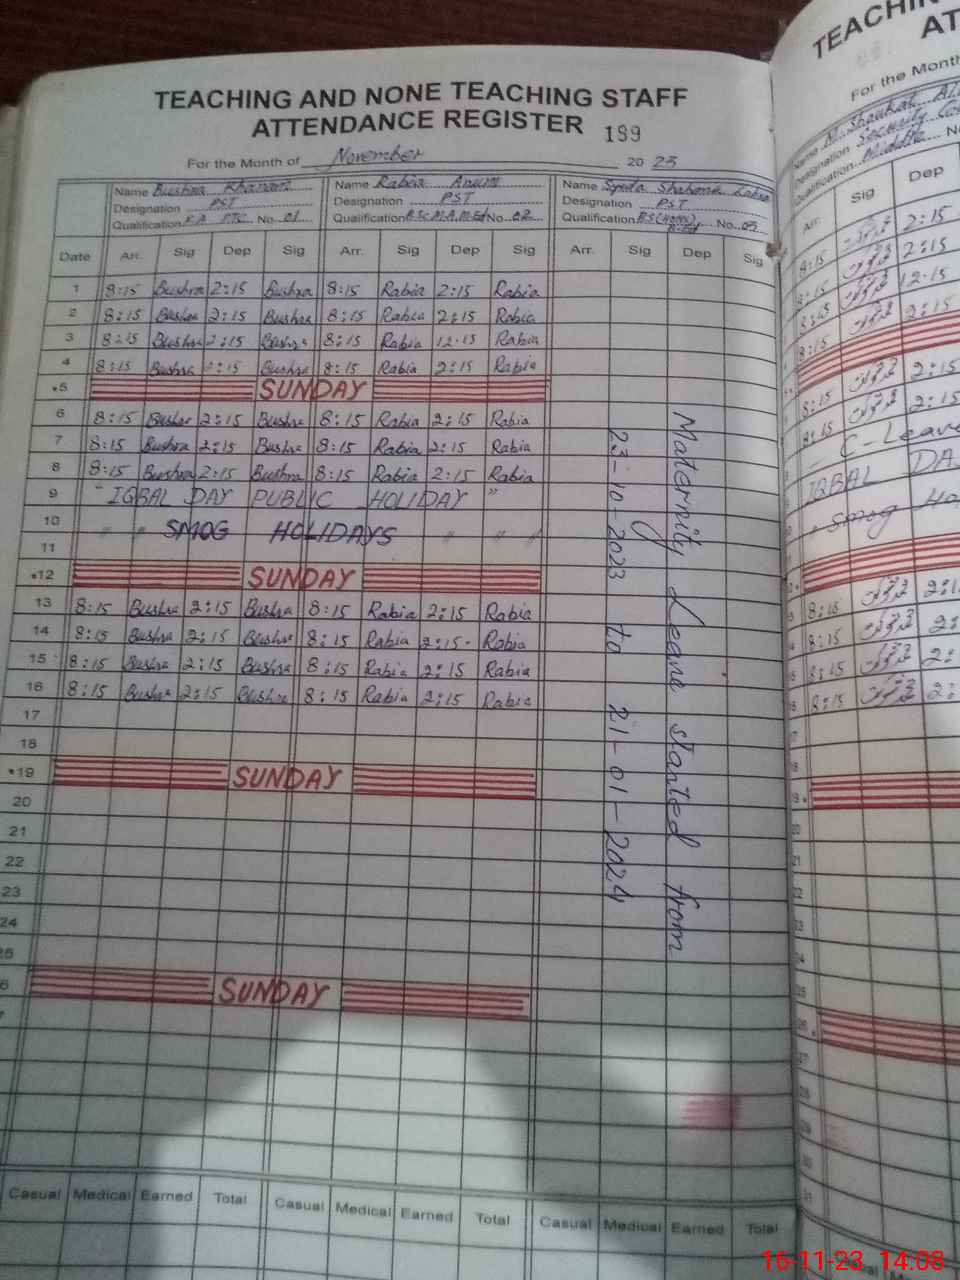 TEACHING AND NONE TEACHING STAFF
ATTENDANCE REGISTER 199
For the Month of November 2023
Name Bushra Khanam Name Rabia Anum Name Syeda Shabana
Designation PST Designation PST Designation PST
Qualification F.A PTC No. 01 Qualification B.Sc M.A M.Ed No. 02 Qualification B.S (Hons) B.Ed No. 03
Date Arr. Sig Dep Sig Arr. Sig Dep Sig Arr. Sig Dep Sig
1 8:15 Bushra 2:15 Bushra 8:15 Rabia 2:15 Rabia
2 8:15 Bushra 2:15 Bushra 8:15 Rabia 2:15 Rabia
3 8:15 Bushra Bushra 8:15 Rabia 12:15 Rabia
4 8:15 Bushra 2:15 Bushra 8:15 Rabia 2:15 Rabia
5 SUNDAY
6 8:15 Bushra 2:15 Bushra 8:15 Rabia 2:15 Rabia
7 8:15 Bushra 2:15 Bushra 8:15 Rabia 2:15 Rabia
8 8:15 Bushra 2:15 Bushra 8:15 Rabia 2:15 Rabia
9 " IQBAL DAY PUBLIC HOLIDAY "
10 " " SMOG HOLIDAYS " " "
11
12 SUNDAY
13 8:15 Bushra 2:15 Bushra 8:15 Rabia 2:15 Rabia
14 8:15 Bushra 2:15 Bushra 8:15 Rabia 2:15 Rabia
15 8:15 Bushra 2:15 Bushra 8:15 Rabia 2:15 Rabia
16 8:15 Bushra 2:15 Bushra 8:15 Rabia 2:15 Rabia
17
18
19 SUNDAY
20
21
22
23
24
25
6 SUNDAY
Maternity Leave started from
23-10-2023 to 21-01-2024
Casual Medical Earned Total Casual Medical Earned Total Casual Medical Earned Total
TEACHIN
AT
For the Month
Name M. Shaukat
Designation Security
Qualification Middle
Arr. Sig Dep
8:15 2:15
8:15 2:15
8:15 12:15
8:15 2:15
8:15 2:15
8:15 2:15
- C-Leave
IQBAL DA
" Smog Ho
8:15
8:15 2:
8:15 2:
8:15 2:
16-11-23 14:08